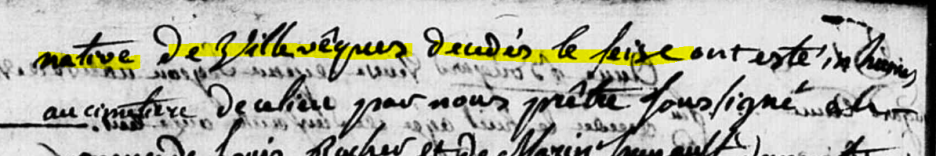 native de Villevêques deccédés le seise ont esté inhumés
au cimetiere de ce lieu par nous prêtre soussigné a la
de Louis Rocher et de Marin